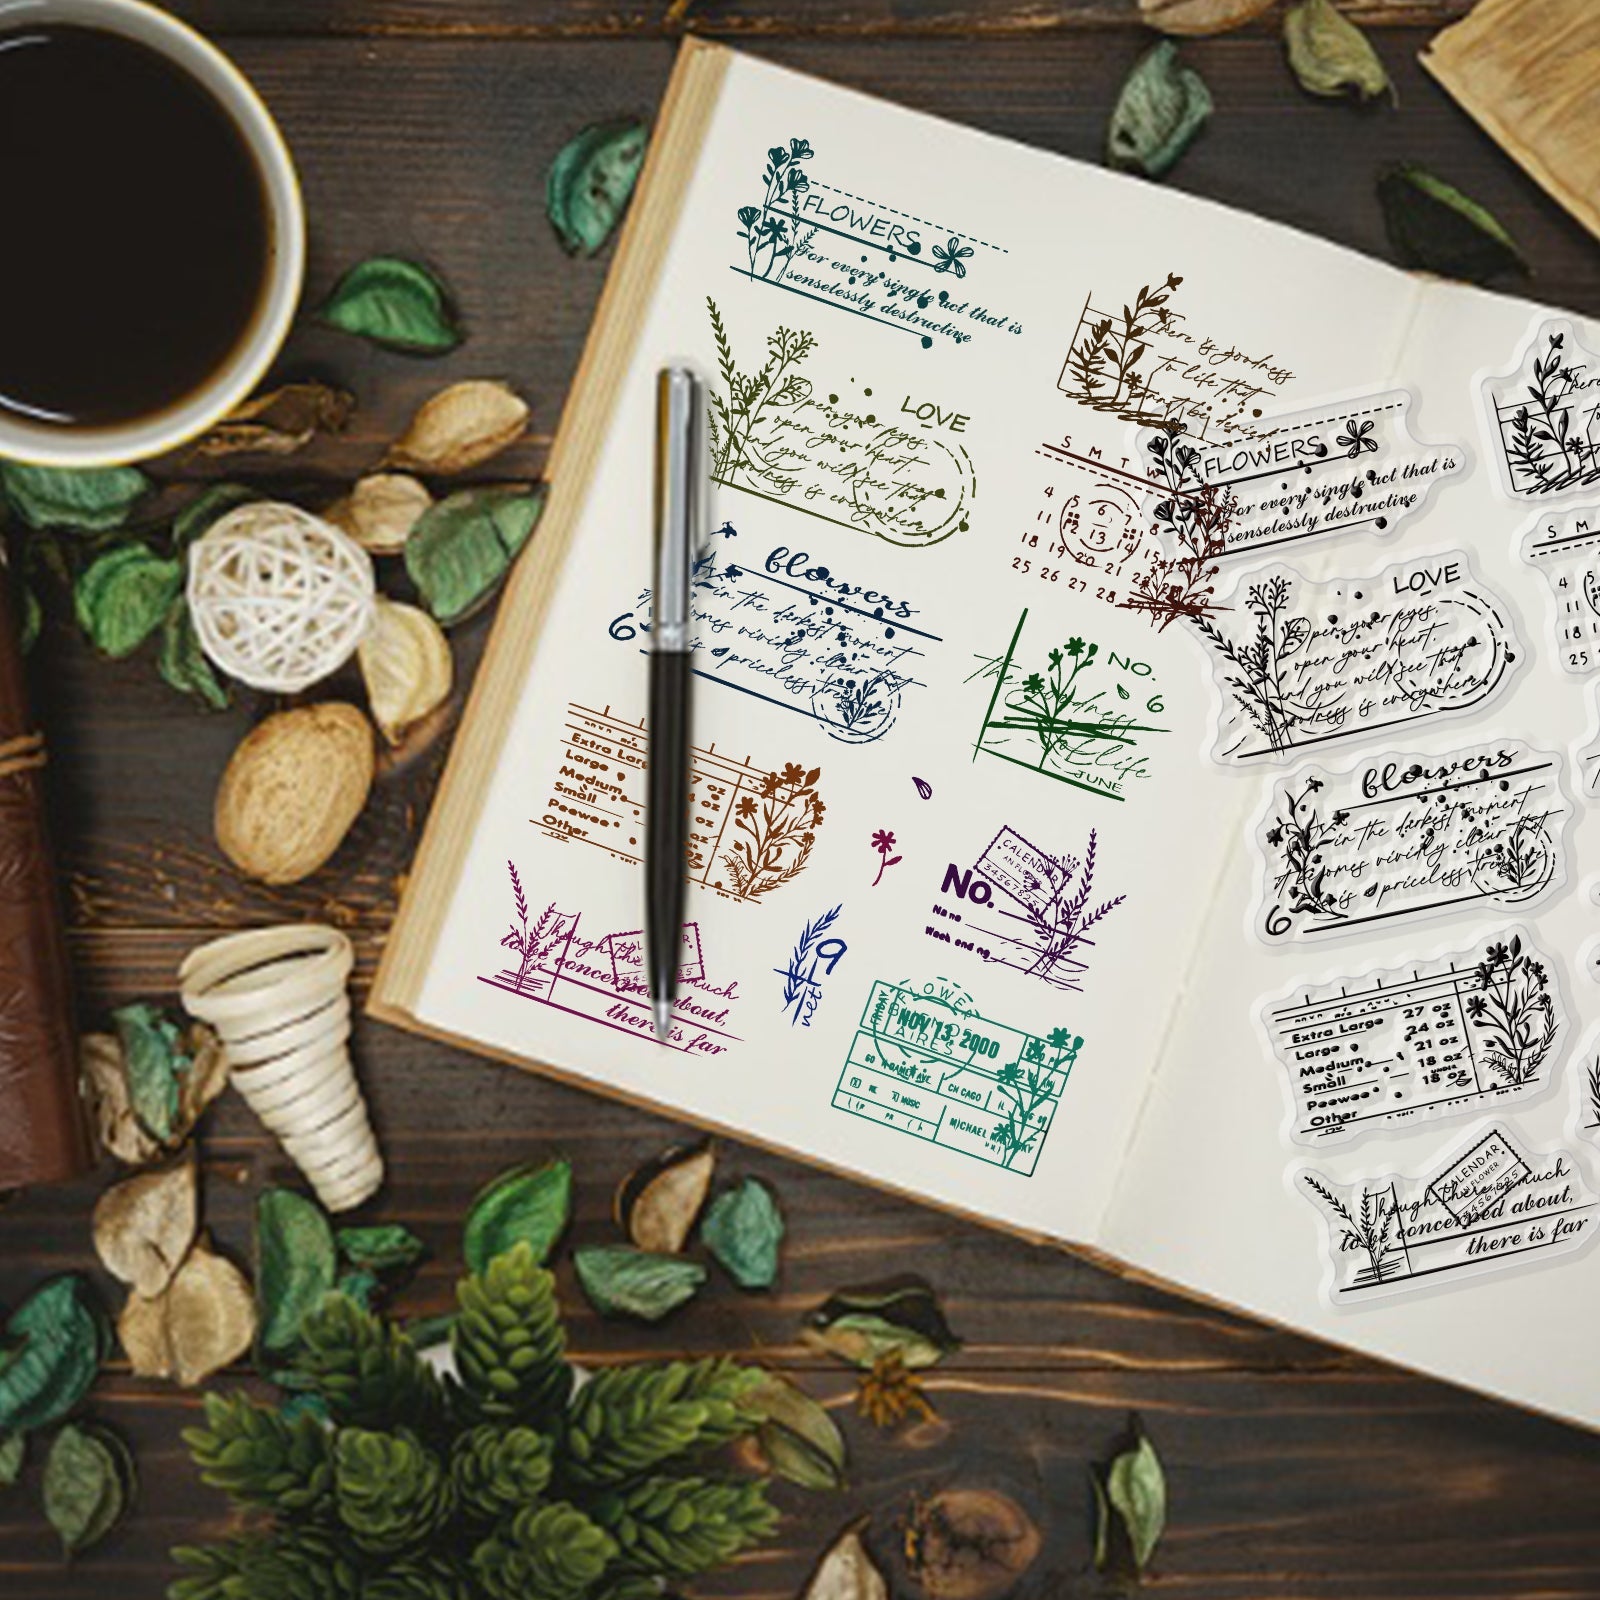 FLOWERS
For every single act that is
senselessly destructive
There is goodness
to life that
LOVE
Open your eyes,
open your heart,
and you will see that
goodness is everywhere
S M T W
4 5 6 7 8
11 12 13 14 15
18 19 20 21 22
25 26 27 28 29
blowers
in the darkest moment
omes vividly clear that
is priceless
6
NO.
6
the goodness
of life
JUNE
Extra Large 27 oz
Large oz
Medium oz
Small oz
Peewee oz
Other
CALENDAR
AN FLOWER
3456782
NO.
Name
Week ending
Though there much
to be concerned about,
there is far
9
net
FLOWER
FRIDAY
NOV 13, 2000
AIRES
CHICAGO IL
MUSIC
MICHAEL
FLOWERS
For every single act that is
senselessly destructive
There
S M
4 5
11
18 1
25
LOVE
Open your eyes,
open your heart,
and you will see that
goodness is everywhere
blowers
in the darkest moment
it becomes vividly clear that
is priceless
6
Extra Large 27 oz
Large 24 oz
Medium 21 oz
Small 18 oz
Peewee UNDER 18 oz
Other
CALENDAR
AN FLOWER
Though there is much
to be concerned about,
there is far